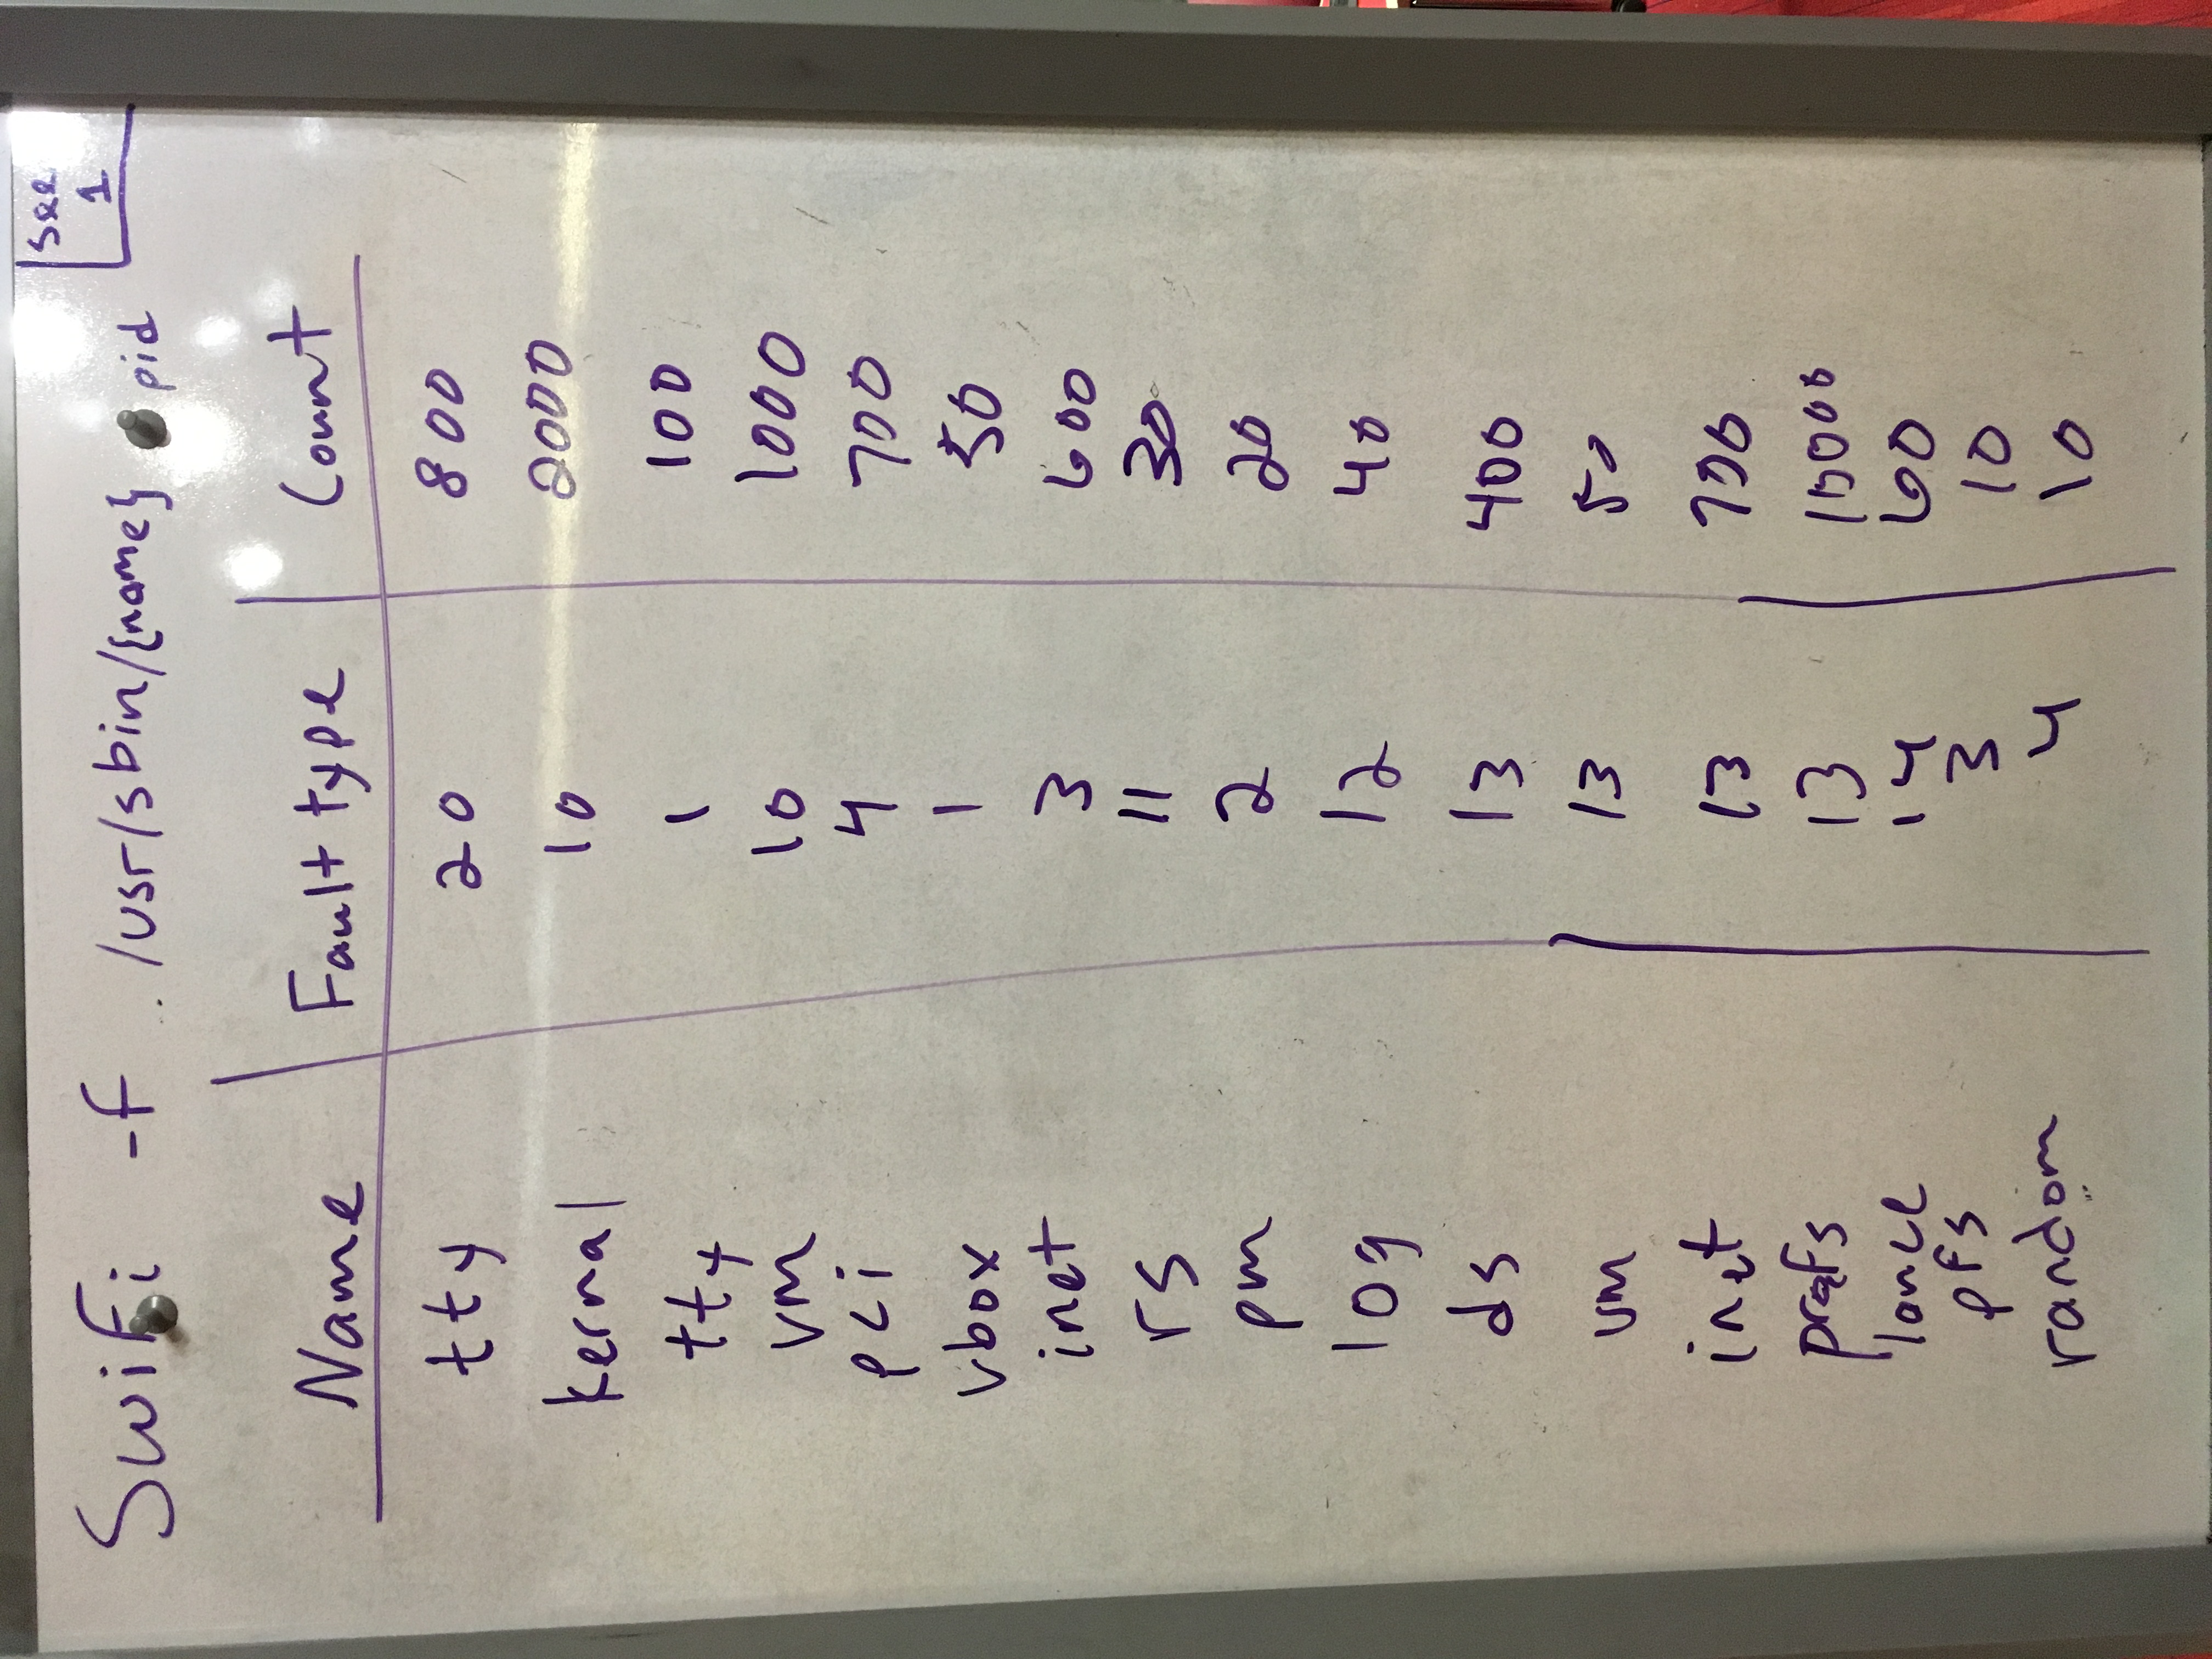 see
1
SwiFi -f /usr/sbin/{name} pid
Name Fault type Count
tty 20 800
kernal 10 2000
tty 1 100
vm 10 1000
pci 4 700
vbox 1 50
inet 3 600
rs 11 30
pm 2 20
log 12 40
ds 13 400
vm 13 50
inet 13 700
13 10000
lance 14 60
pfs 3 10
random 4 10